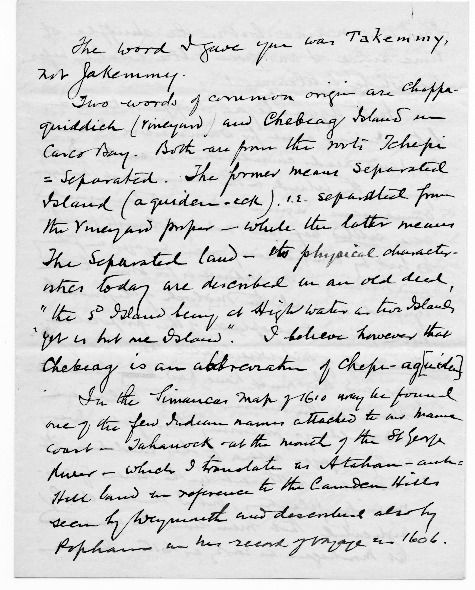 The word I gave you was Takemmy,
not Jakemmy.
Two words of common origin are Chappa-
quiddick (Vineyard) and Chebeag Island in
Casco Bay. Both are from the roots Tchepi
= Separated. The former means Separated
Island (aquiden-eck). i.e. separated from
the Vineyard proper - while the latter means
The Separated land - its physical character-
istics today are described in an old deed,
"the sd Island being at High water as two Islands
"yet is but one Island". I believe however that
Chebeag is an abbreviation of Chepi-aq[uiden]
In the Simancas map of 1610 may be found
one of the few Indian names attached to our Maine
coast - Tahanock - at the mouth of the St George
River - which I translate as
Hill land in reference to the Camden Hills
seen by Weymouth and described also by
Popham in his record of voyage in 1606.